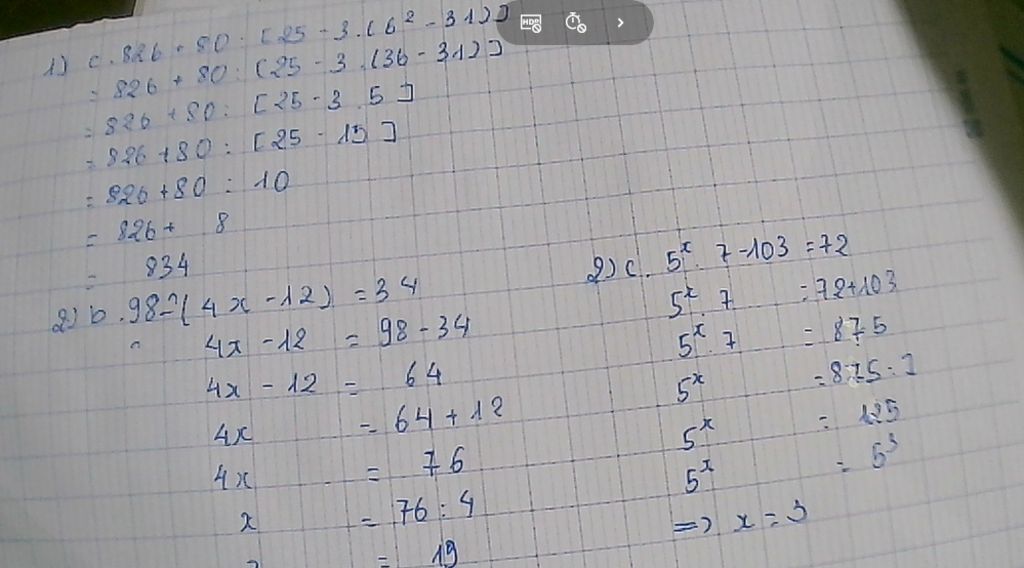 1) c. 826 + 80 : [25 - 3.(6² - 31)]
= 826 + 80 : [25 - 3.(36 - 31)]
= 826 + 80 : [25 - 3.5]
= 826 + 80 : [25 - 15]
= 826 + 80 : 10
= 826 + 8
= 834
2) b. 98 - (4x - 12) = 34
4x - 12 = 98 - 34
4x - 12 = 64
4x = 64 + 12
4x = 76
x = 76 : 4
= 19
2) c. 5ˣ . 7 - 103 = 72
5ˣ . 7 = 72 + 103
5ˣ . 7 = 875
5ˣ = 875 :
5ˣ = 125
5ˣ = 5³
=> x = 3